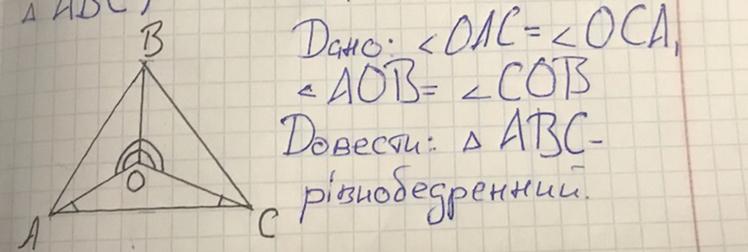 △ ABC,
Дано: <OAC = <OCA,
<AOB = <COB
Довести: △ ABC-
рівнобедренний.
B
O
A
C